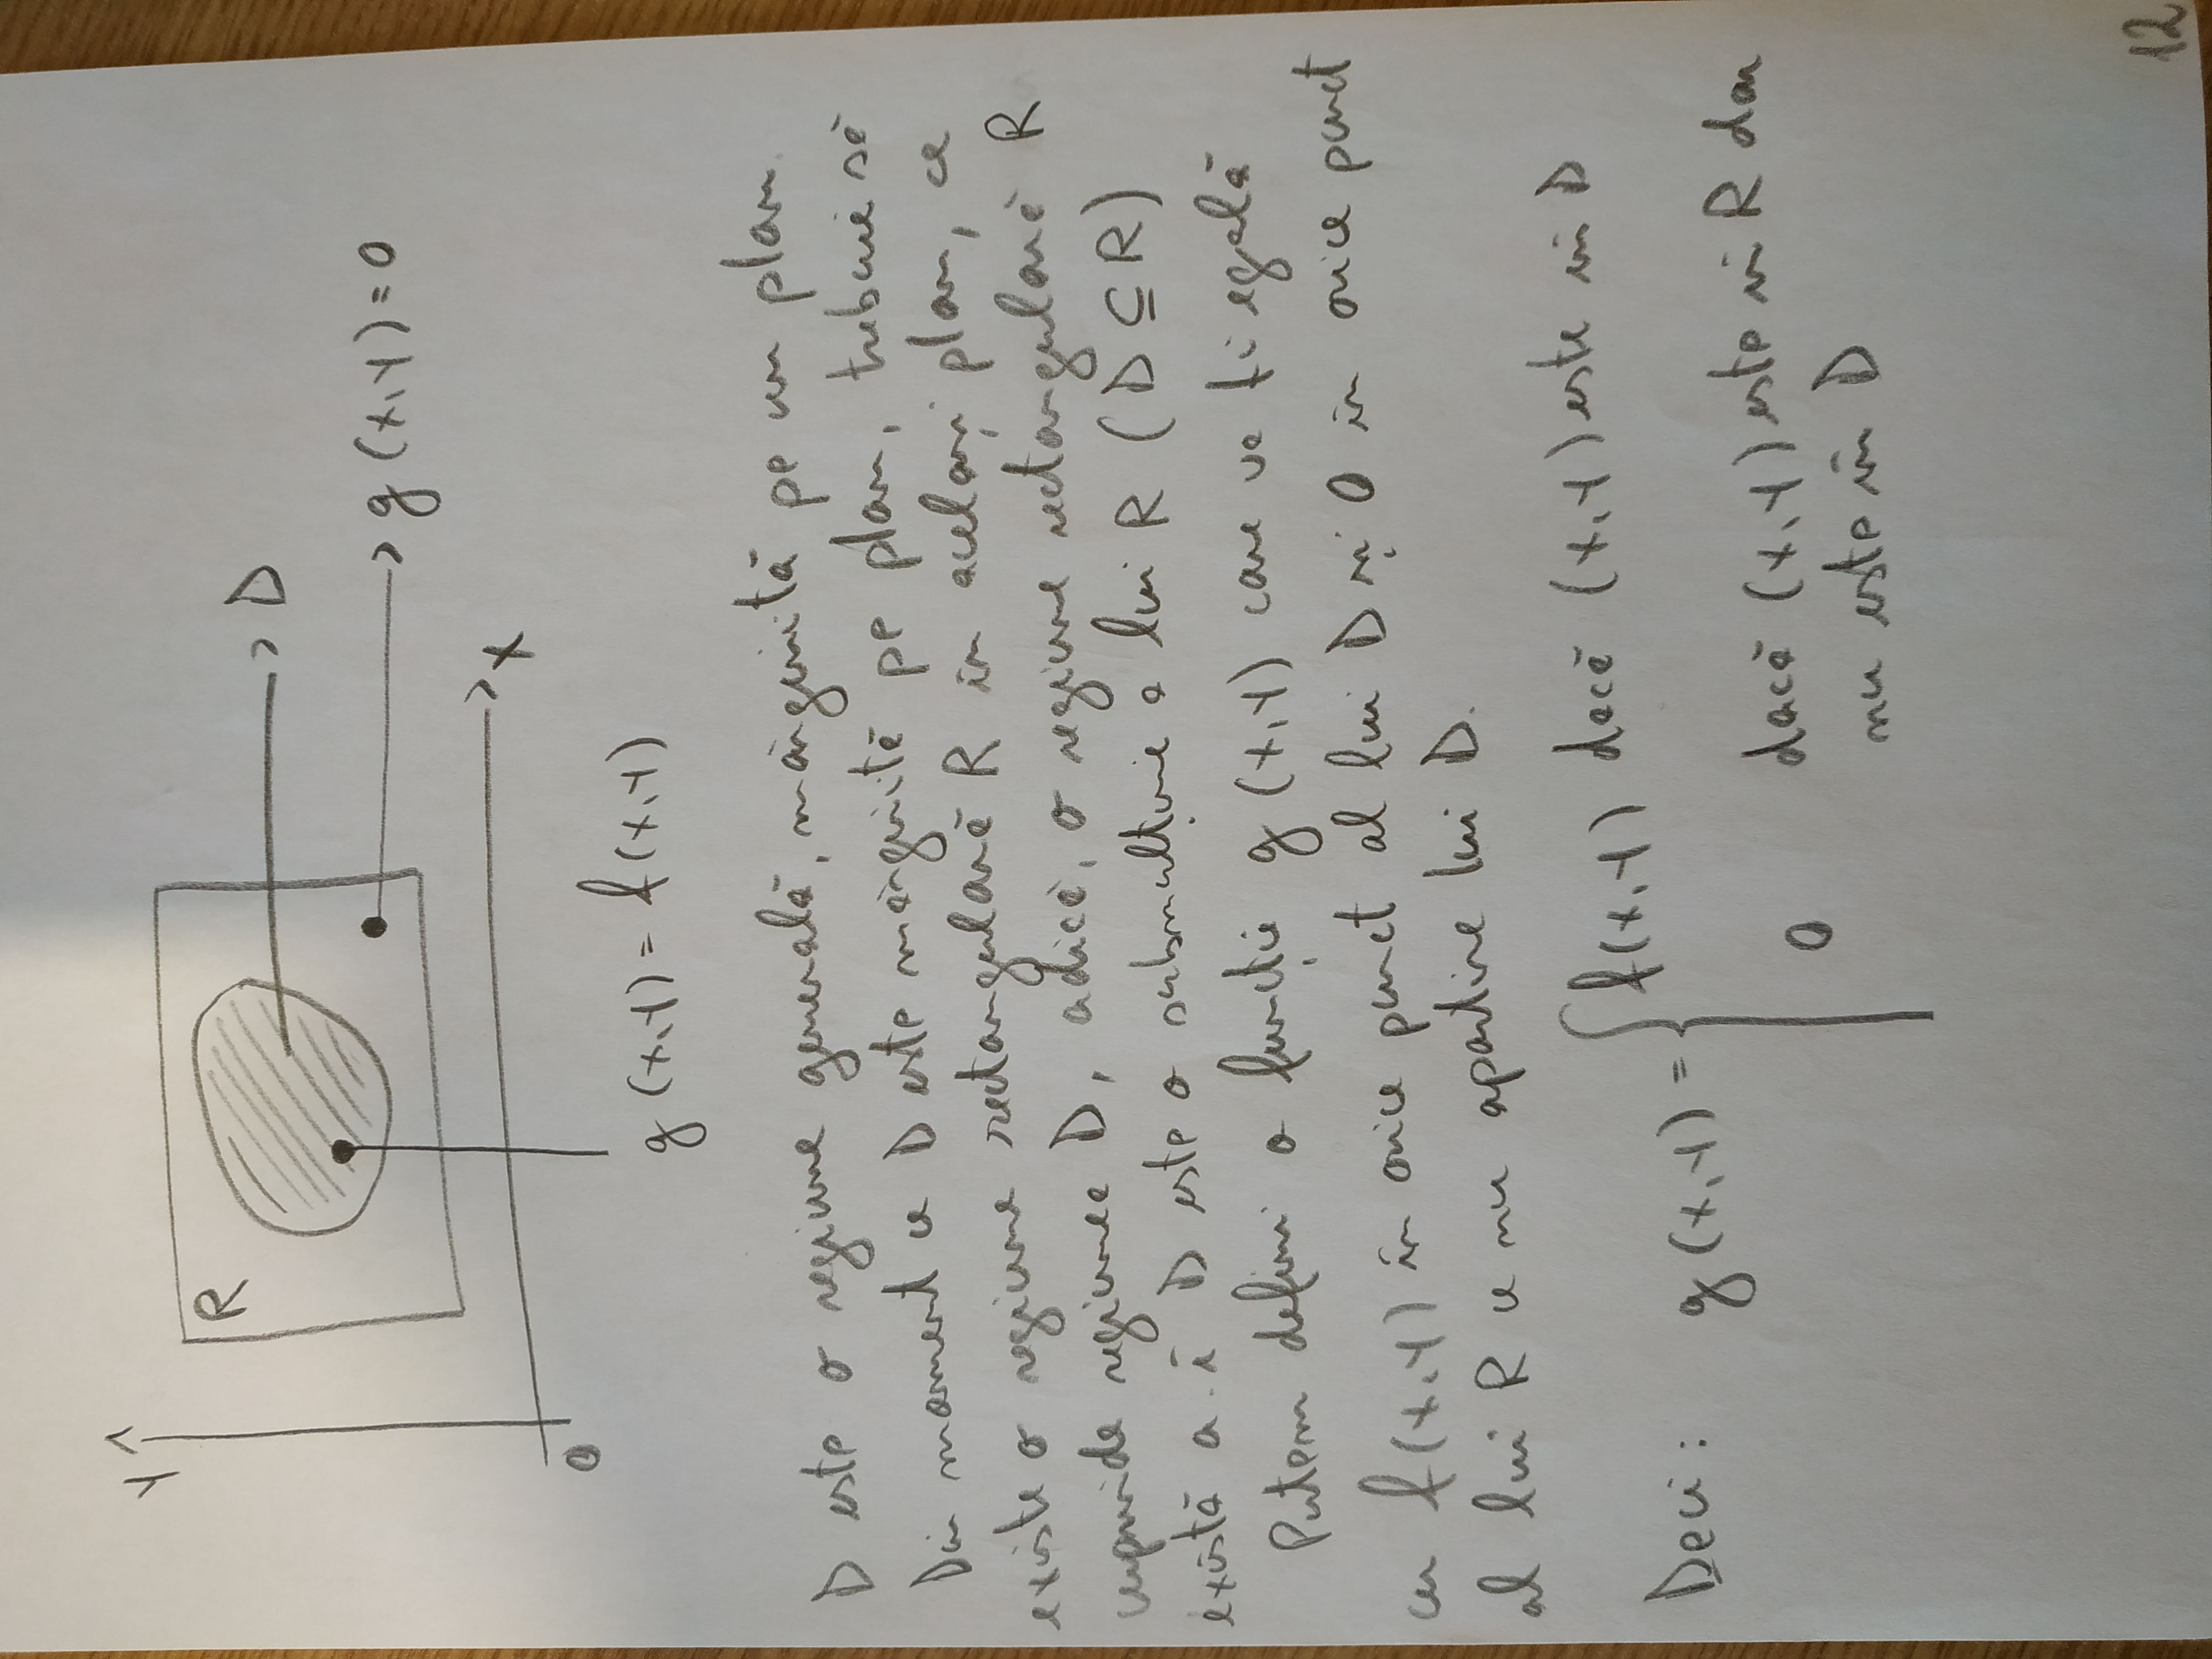 Y
R
D
g(x,y)=0
X
0
g(x,y)=f(x,y)
D este o regiune generală, mărginită pe un plan.
Din moment ce D este mărginită pe plan, trebuie să
existe o regiune rectangulară R în același plan, ce
cuprinde regiunea D, adică, o regiune rectangulară R
există a. î D este o submulțime a lui R (D ⊆ R)
Putem defini o funcție g(x,y) care va fi egală
cu f(x,y) în orice punct al lui D și 0 în orice punct
al lui R ce nu aparține lui D.
Deci: g(x,y) = { f(x,y) dacă (x,y) este în D
0 dacă (x,y) este în R dar
nu este în D
12